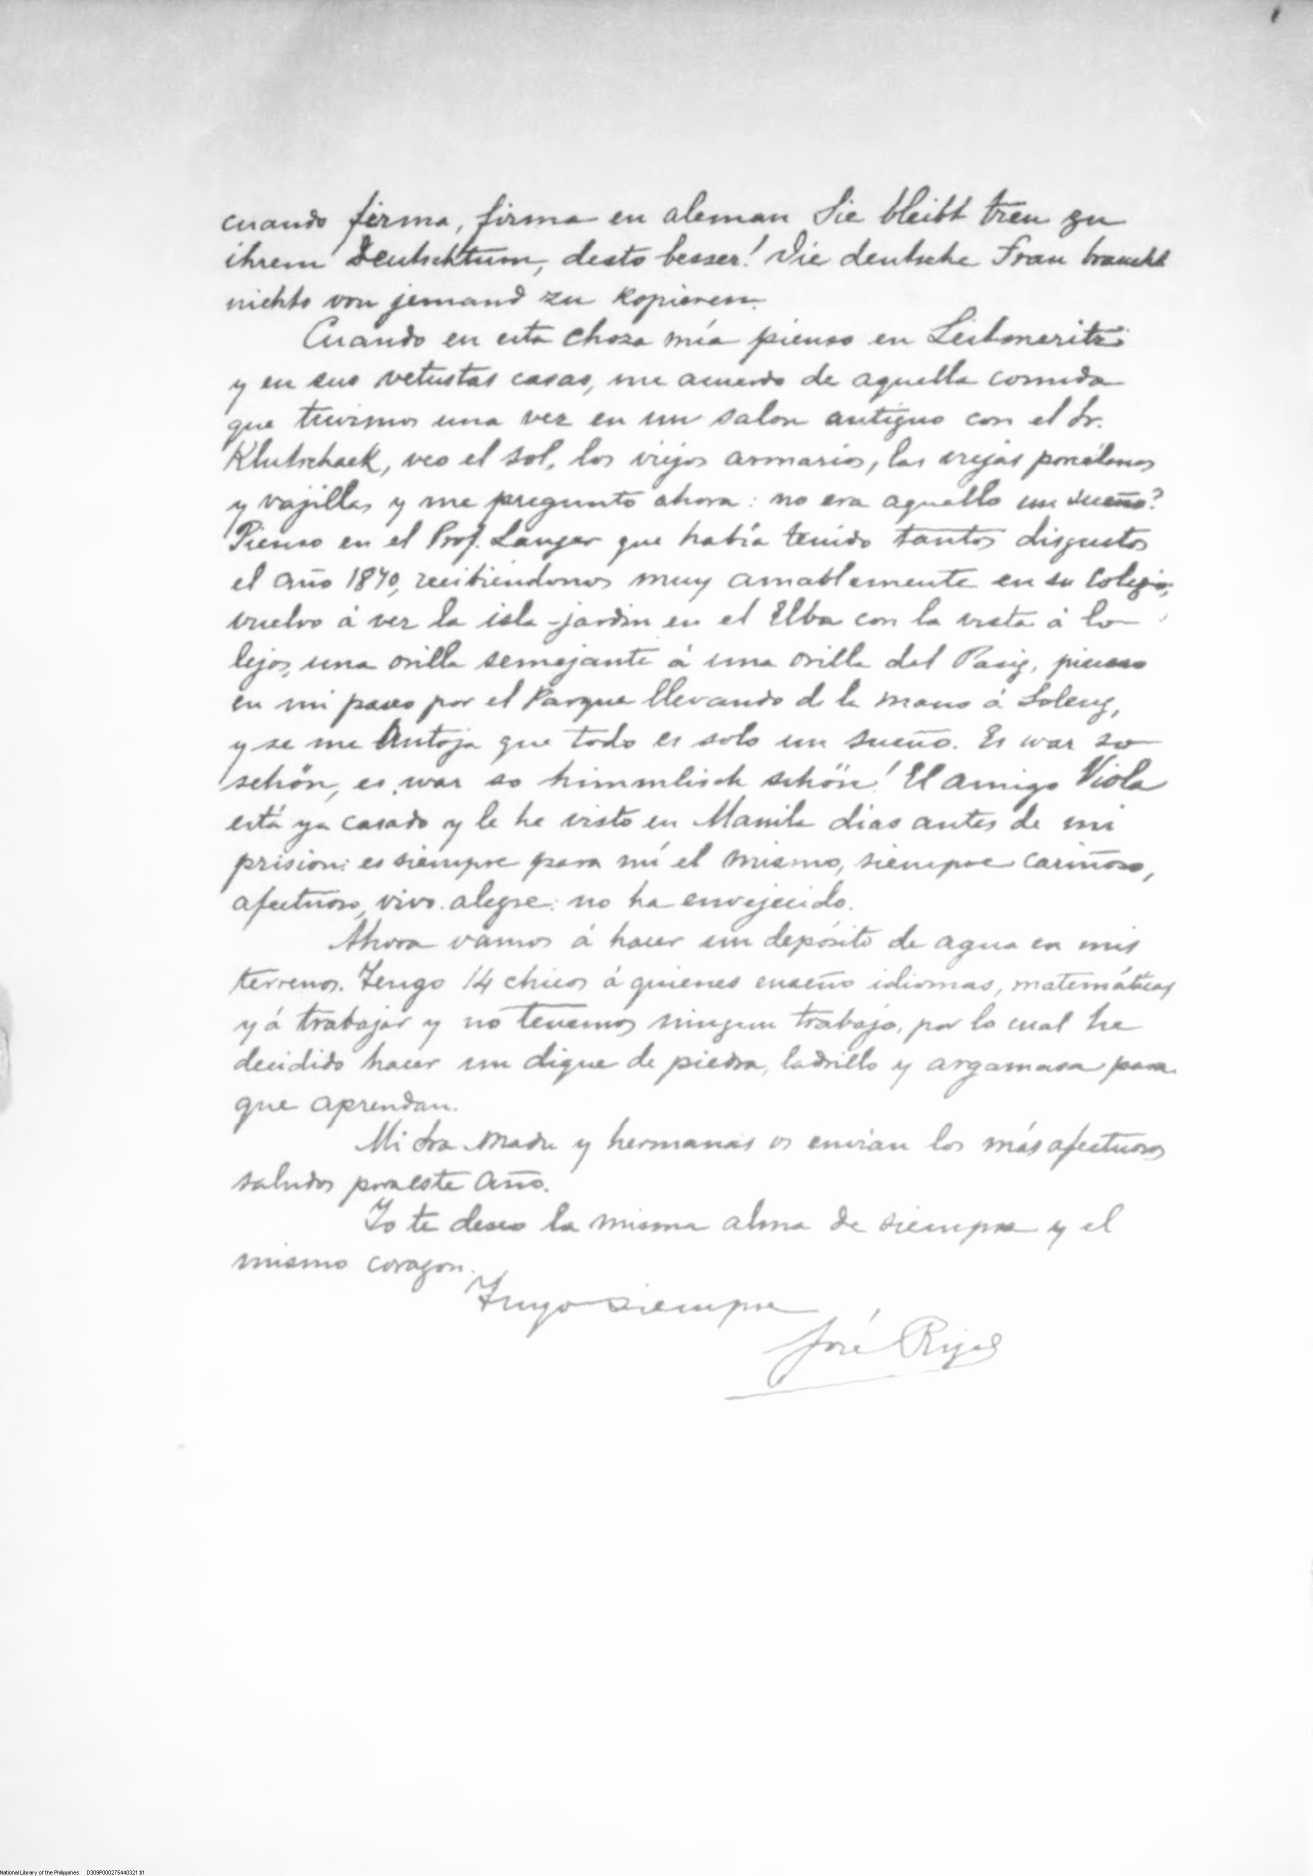 cuando firma, firma en aleman Sie bleibt treu zu
ihrem Deutschtum, desto besser! Die deutsche Frau braucht
nichts von jemand zu kopieren.
Cuando en esta choza mía pienso en Leitmeritz
y en sus vetustas casas, me acuerdo de aquella comida
que tuvimos una vez en un salon antiguo con el Dr.
Klutschack, veo el sol, los viejos armarios, las viejas porcelanas
y vajillas y me pregunto ahora: no era aquello un sueño?
Pienso en el Prof. Langer que había tenido tantos disgustos
el año 1870, recibiéndonos muy amablemente en su Colegio,
vuelvo á ver la isla-jardin en el Elba con la vista á lo
lejos, una orilla semejante á una orilla del Pasig, pienso
en mi paseo por el Parque llevando de la mano á Loleng,
y se me antoja que todo es solo un sueño. Es war so
schön, es war so himmlisch schön! El amigo Viola
está ya casado y le he visto en Manila dias antes de mi
prision: es siempre para mí el mismo, siempre cariñoso,
afectuoso, vivo. alegre: no ha envejecido.
Ahora vamos á hacer un depósito de agua en mis
terrenos. Tengo 14 chicos á quienes enseño idiomas, matemáticas
y á trabajar y no tenemos ningun trabajo, por lo cual he
decidido hacer un dique de piedra, ladrillo y argamasa para
que aprendan.
Mi Sra Madre y hermanas os envian los más afectuosos
saludos para este año.
Yo te deseo la misma alma de siempre y el
mismo corazon.
Tuyo siempre
José Rizal
National Library of the Philippines